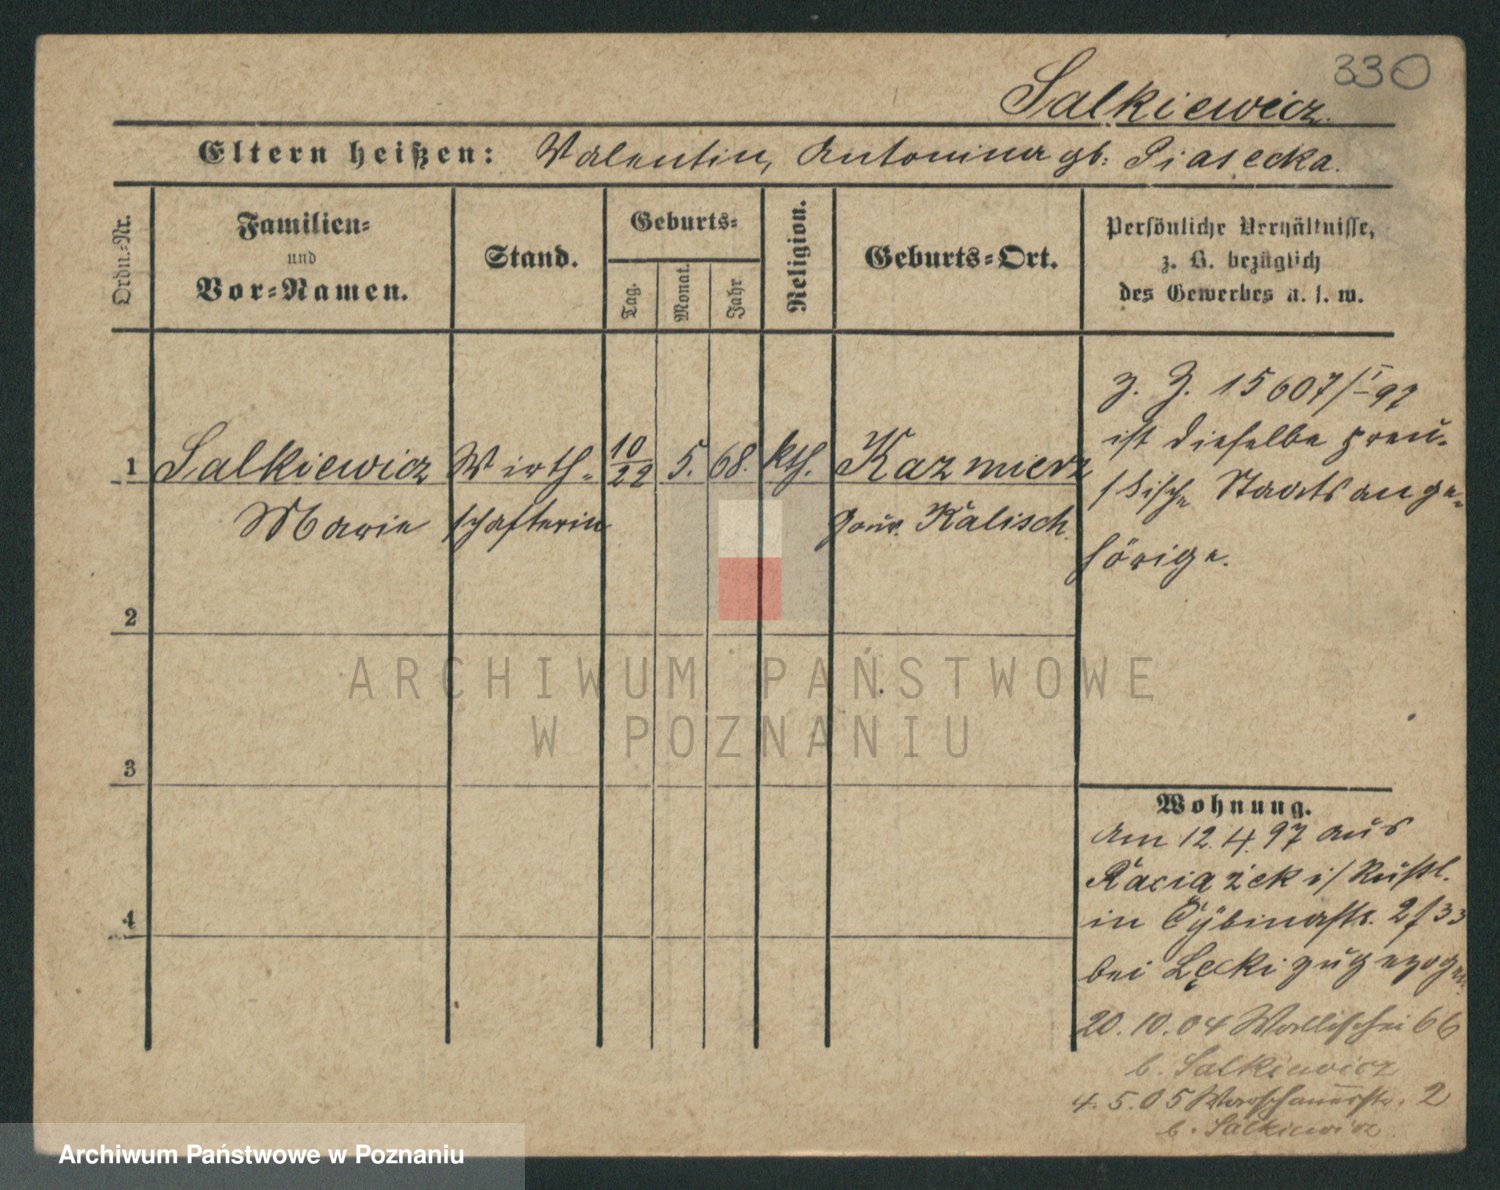 330
Salkiewicz.
Eltern heißen: Valentin, Antonina gb: Piasecka.
Ordn.-Nr.
Familien-
und
Vor-Namen.
Stand.
Geburts-
Tag.
Monat.
Jahr
Religion.
Geburts-Ort.
Persönliche Verhältnisse,
z. B. bezüglich
des Gewerbes u. s. w.
1 Salkiewicz Wirth- 10/22 5. 68. kth. Kazmierz
Marie schafterin Gouv. Kalisch.
z. Z. 15607/I 97
ist dieselbe preu-
ßische Staatsange-
hörige.
2
3
4
Wohnung.
Am 12.4.97 aus
Raciązek i/ Rußl.
in Cybinastr. 2/33
bei Lęcki zugezogen
20.10.04 Wallischei 66
b. Salkiewicz
4.5.05 Warschauerstr. 2
b. Salkiewicz
ARCHIWUM PAŃSTWOWE
W POZNANIU
Archiwum Państwowe w Poznaniu